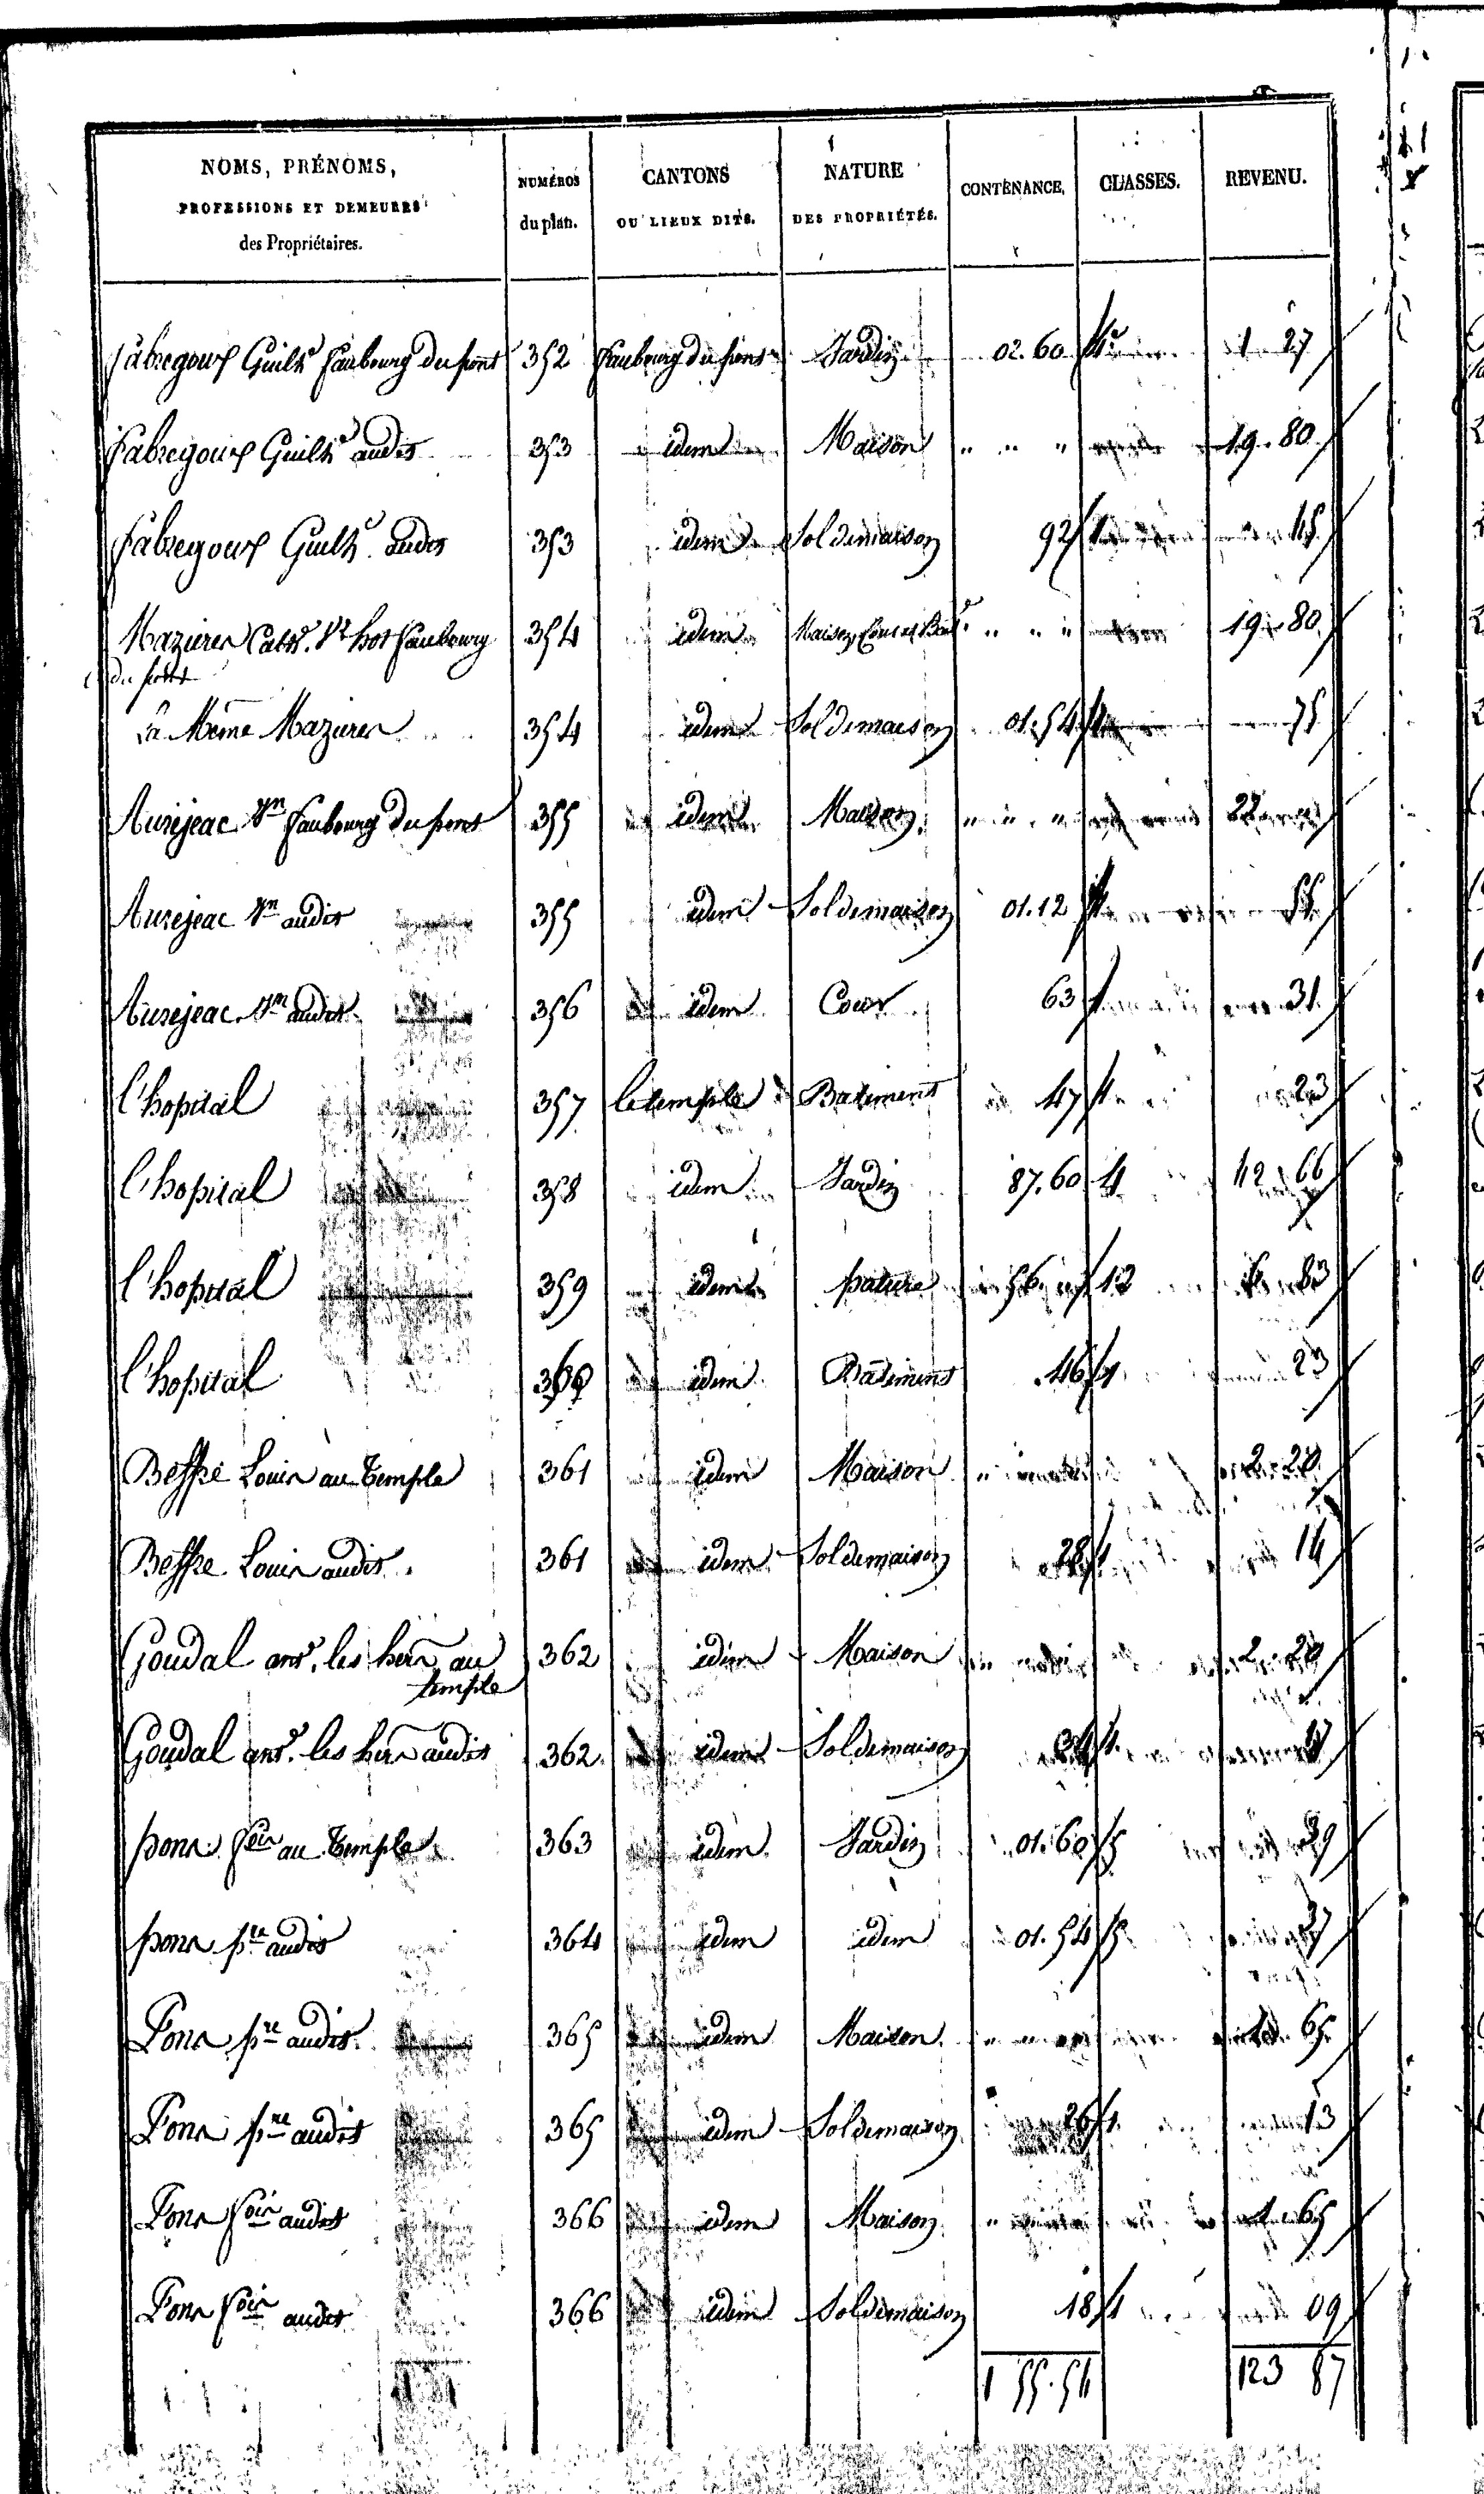 NOMS, PRÉNOMS, PROFESSIONS ET DEMEURES des Propriétaires. NUMÉROS du plan. CANTONS OU LIEUX DITS. NATURE DES PROPRIÉTÉS. CONTENANCE. CLASSES. REVENU.
fabregous Guilhe Faubourg du pont 352 faubourg du pont Jardin 02.60 1 27
fabregous Guilhe audit 353 idem Maison " " " 19.80
fabregous Guilhe audit 353 idem Sol de maison 92 1 45
Mazieres Cathe Faubourg 354 idem " " " 19.80
du pont
La Même Mazieres 354 idem Sol de maison 01.54 1 75
Aurejeac Faubourg du pont 355 idem Maison " " " 22
Aurejeac audit 355 idem Sol de maison 01.12 1 55
Aurejeac audit 356 idem Cour 63 1 31
l'hopital 357 le temple Batiment 47 1 23
l'hopital 358 idem Jardin 87.60 42 66
l'hopital 359 idem pature 56 83
l'hopital 360 idem Batiment 46 1 23
Beffre Louis au Temple 361 idem Maison 2.20
Beffre Louis audit 361 idem Sol de maison 28 1 14
Goudal ant. les hers au 362 idem Maison 2.20
temple
Goudal ant. les hers audit 362 idem Sol de maison 34 1 17
pons au Temple 363 idem Jardin 01.60 5 39
pons pre audit 364 idem idem 01.54 5 37
Pons pre audit 365 idem Maison 1.65
Pons pre audit 365 idem Sol de maison 26 1 13
Pons audit 366 idem Maison 1.65
Pons audit 366 idem Sol de maison 18 1 09
1 55.54 123 87